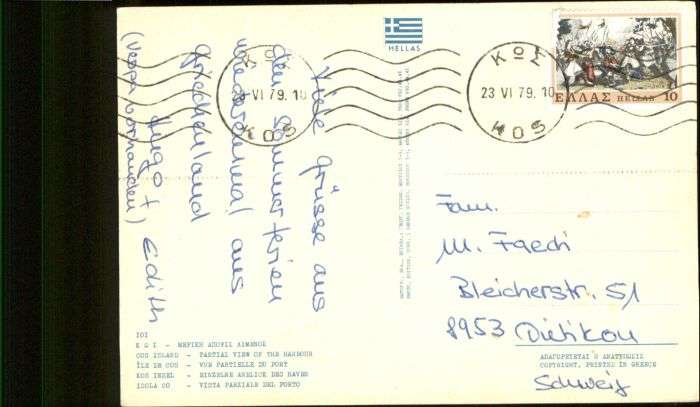 HELLAS
ΚΩΣ
23 VI 79. 10
KOS
VI 79. 10
KOS
ΕΛΛΑΣ HELLAS 10
Viele Grüsse aus
den Sommerferien
wiedereinmal aus
Griechenland
Hugo + Edith
(Vespa vorhanden)
Fam.
M. Faech
Bleicherstr. 51
8953 Dietikon
Schweiz
101
ΚΩΣ - ΜΕΡΙΚΗ ΑΠΟΨΙΣ ΛΙΜΕΝΟΣ
COS ISLAND - PARTIAL VIEW OF THE HARBOUR
ÎLE DE COS - VUE PARTIELLE DU PORT
KOS INSEL - EINZELNE ANSICHT DES HAVEN
ISOLA CO - VISTA PARZIALE DEL PORTO
ΑΠΑΓΟΡΕΥΕΤΑΙ Η ΑΝΑΤΥΠΩΣΙΣ
COPYRIGHT, PRINTED IN GREECE